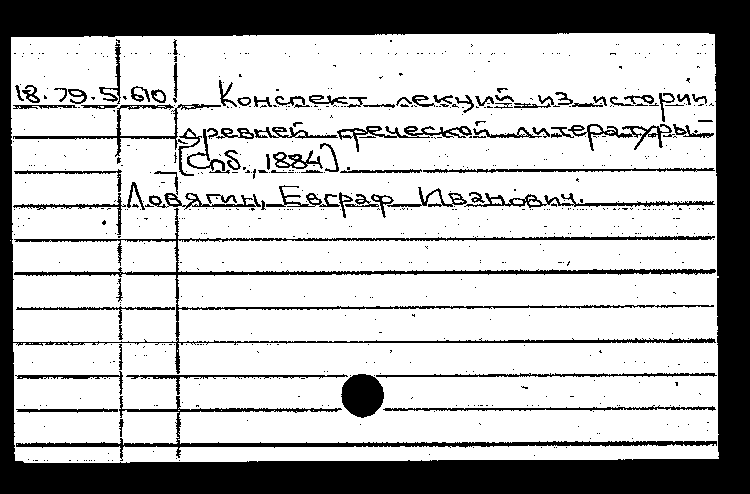 18.79.5.610. Конспект лекций из истории
древней греческой литературы.-
[Спб., 1884].
Ловягин, Евграф Иванович.